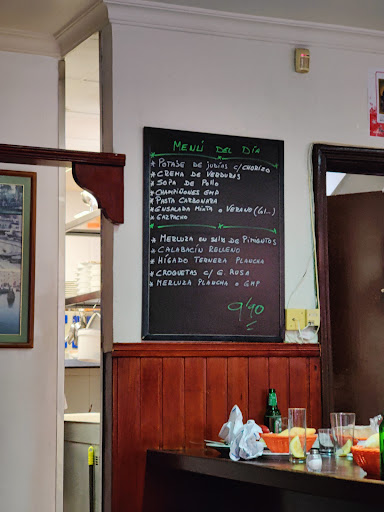 MENÚ DEL DÍA
* POTAJE DE JUDÍAS C/CHORIZO
* CREMA DE VERDURAS
* SOPA DE POLLO
* CHAMPIÑONES EMP
* PASTA CARBONARA
* ENSALADA MIXTA O VERANO (GL..)
* GAZPACHO
* MERLUZA EN SALSA DE PIMIENTOS
* CALABACÍN RELLENO
* HÍGADO TERNERA PLANCHA
* CROQUETAS C/ G. RUSA
* MERLUZA PLANCHA O GMP
9'40